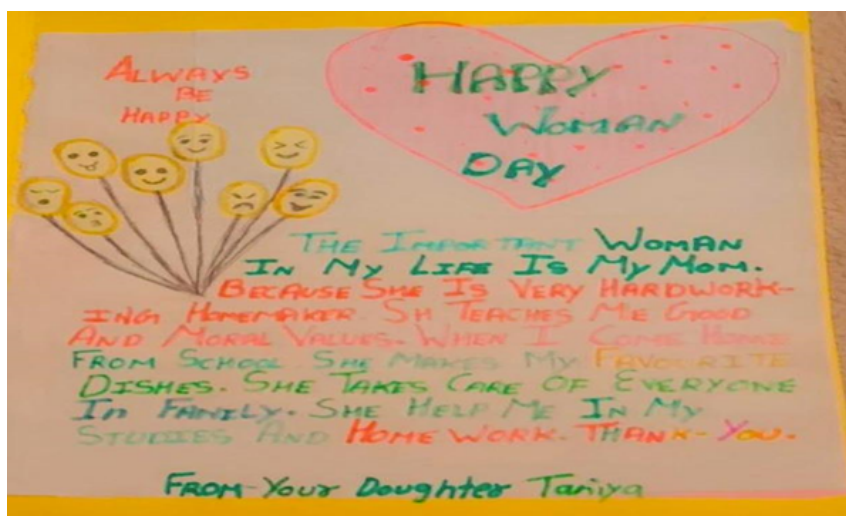 ALWAYS
BE
HAPPY
HAPPY
WOMAN
DAY
THE IMPORTANT WOMAN
IN MY LIFE IS MY MOM.
BECAUSE SHE IS VERY HARDWORK-
ING HOMEMAKER. SH TEACHES ME GOOD
AND MORAL VALUES. WHEN I COME HOME
FROM SCHOOL SHE MAKES MY FAVOURITE
DISHES. SHE TAKES CARE OF EVERYONE
In FAMILY. SHE HELP ME IN MY
STUDIES AND HOME WORK. THANK-YOU.
FROM-Your Doughter Taniya